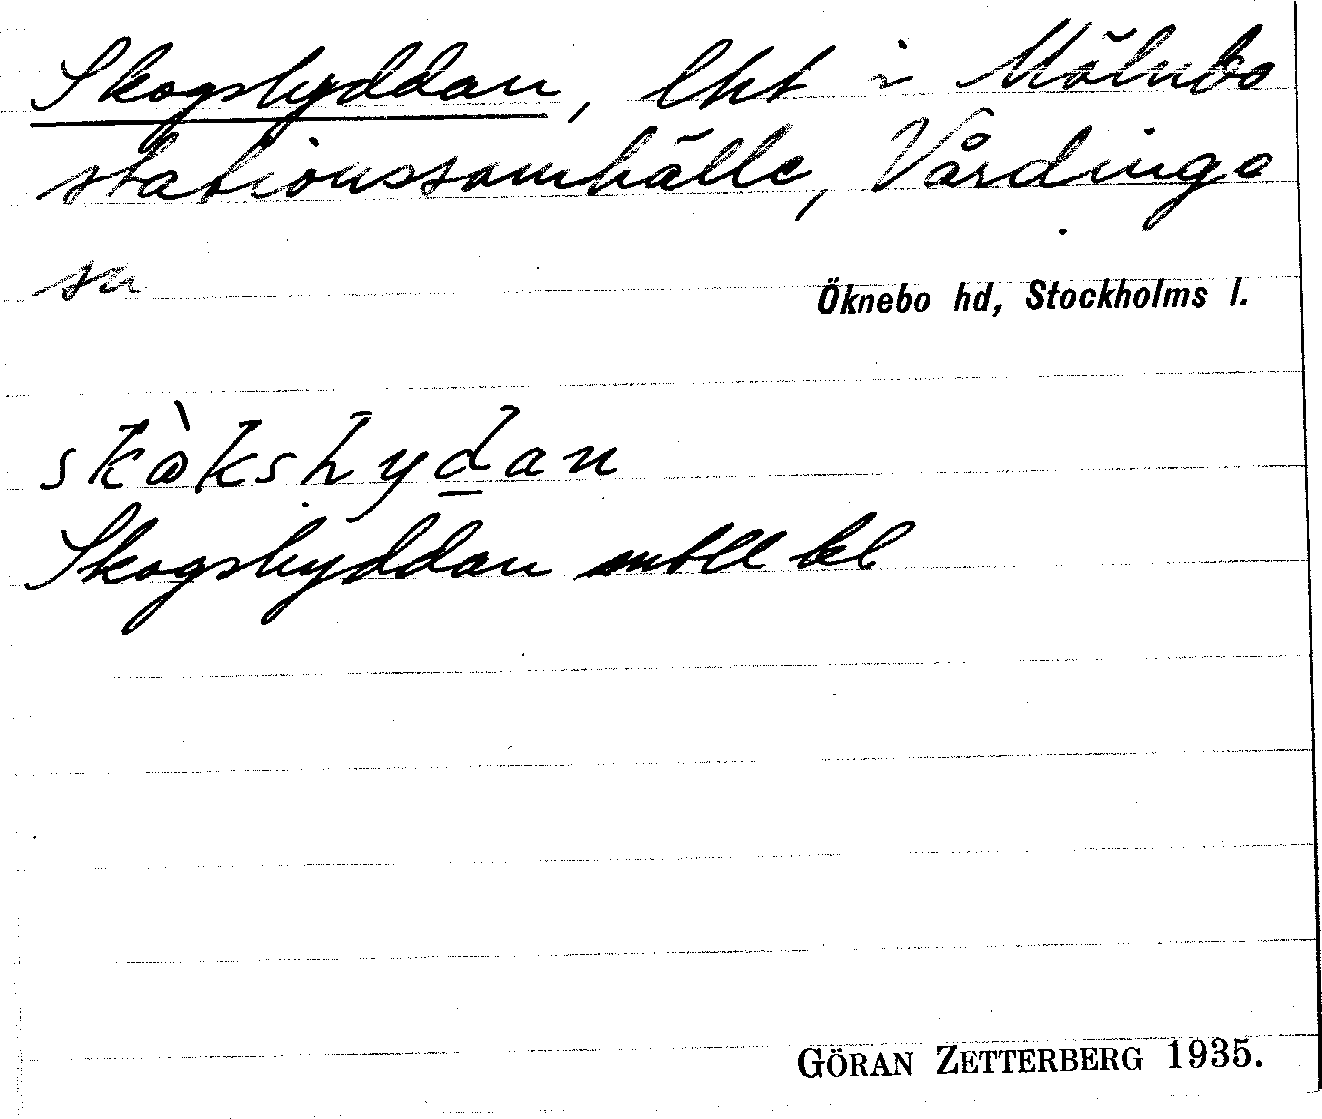 Skogshyddan, lht i Mölnbo
stationssamhälle, Vårdinge
sn
Öknebo hd, Stockholms l.
skὰkshydan
Skogshyddan mtll bl
GÖRAN ZETTERBERG 1935.